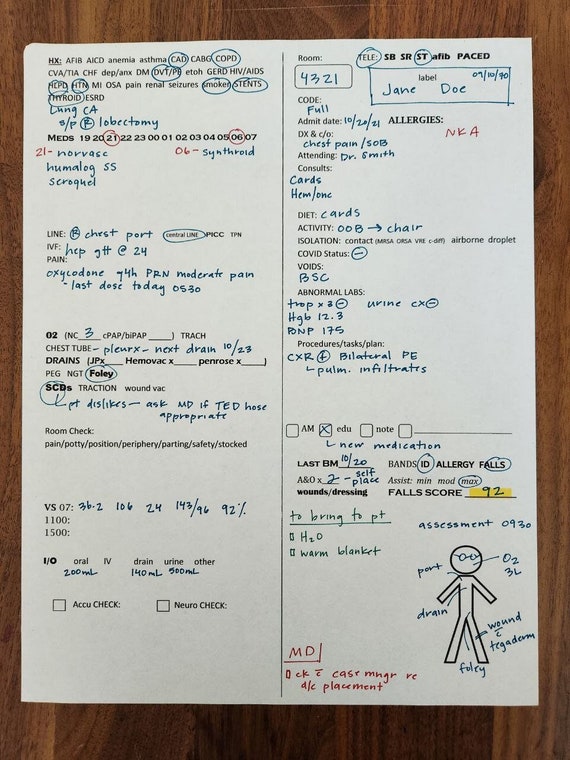 HX: AFIB AICD anemia asthma CAD CABG COPD
CVA/TIA CHF dep/anx DM DVT/PE etoh GERD HIV/AIDS
HLPD HTN MI OSA pain renal seizures smoker STENTS
THYROID ESRD
Lung CA
s/p R lobectomy
MEDS 19 20 21 22 23 00 01 02 03 04 05 06 07
21- norvasc 06- synthroid
humalog SS
seroquel
LINE: R chest port central LINE PICC TPN
IVF: hep gtt @ 24
PAIN:
oxycodone q4h PRN moderate pain
- last dose today 0530
02 (NC 3 cPAP/biPAP ____) TRACH
CHEST TUBE - pleurx - next drain 10/23
DRAINS (JPx____ Hemovac x____ penrose x____)
PEG NGT Foley
SCDs TRACTION wound vac
pt dislikes - ask MD if TED hose
appropriate
Room Check:
pain/potty/position/periphery/parting/safety/stocked
VS 07: 36.2 106 24 143/96 92%
1100:
1500:
I/O oral IV drain urine other
200mL 140mL 500mL
Accu CHECK: Neuro CHECK:
Room: TELE: SB SR ST afib PACED
4321
label 09/10/70
Jane Doe
CODE:
Full
Admit date: 10/20/21 ALLERGIES:
NKA
DX & c/o:
chest pain/SOB
Attending: Dr. Smith
Consults:
Cards
Hem/onc
DIET: cards
ACTIVITY: OOB → chair
ISOLATION: contact (MRSA ORSA VRE c-diff) airborne droplet
COVID Status: -
VOIDS:
BSC
ABNORMAL LABS:
trop x3 - urine cx -
Hgb 12.3
BNP 175
Procedures/tasks/plan:
CXR + Bilateral PE
pulm. infiltrates
AM X edu note
new medication
LAST BM 10/20 BANDS ID ALLERGY FALLS
A&O x 2 - self
place
Assist: min mod max
wounds/dressing FALLS SCORE 92
to bring to pt
H2O
warm blanket
assessment 0930
port
O2
3L
drain
wound
c̄
tegaderm
foley
MD
ck c̄ case mngr re
d/c placement